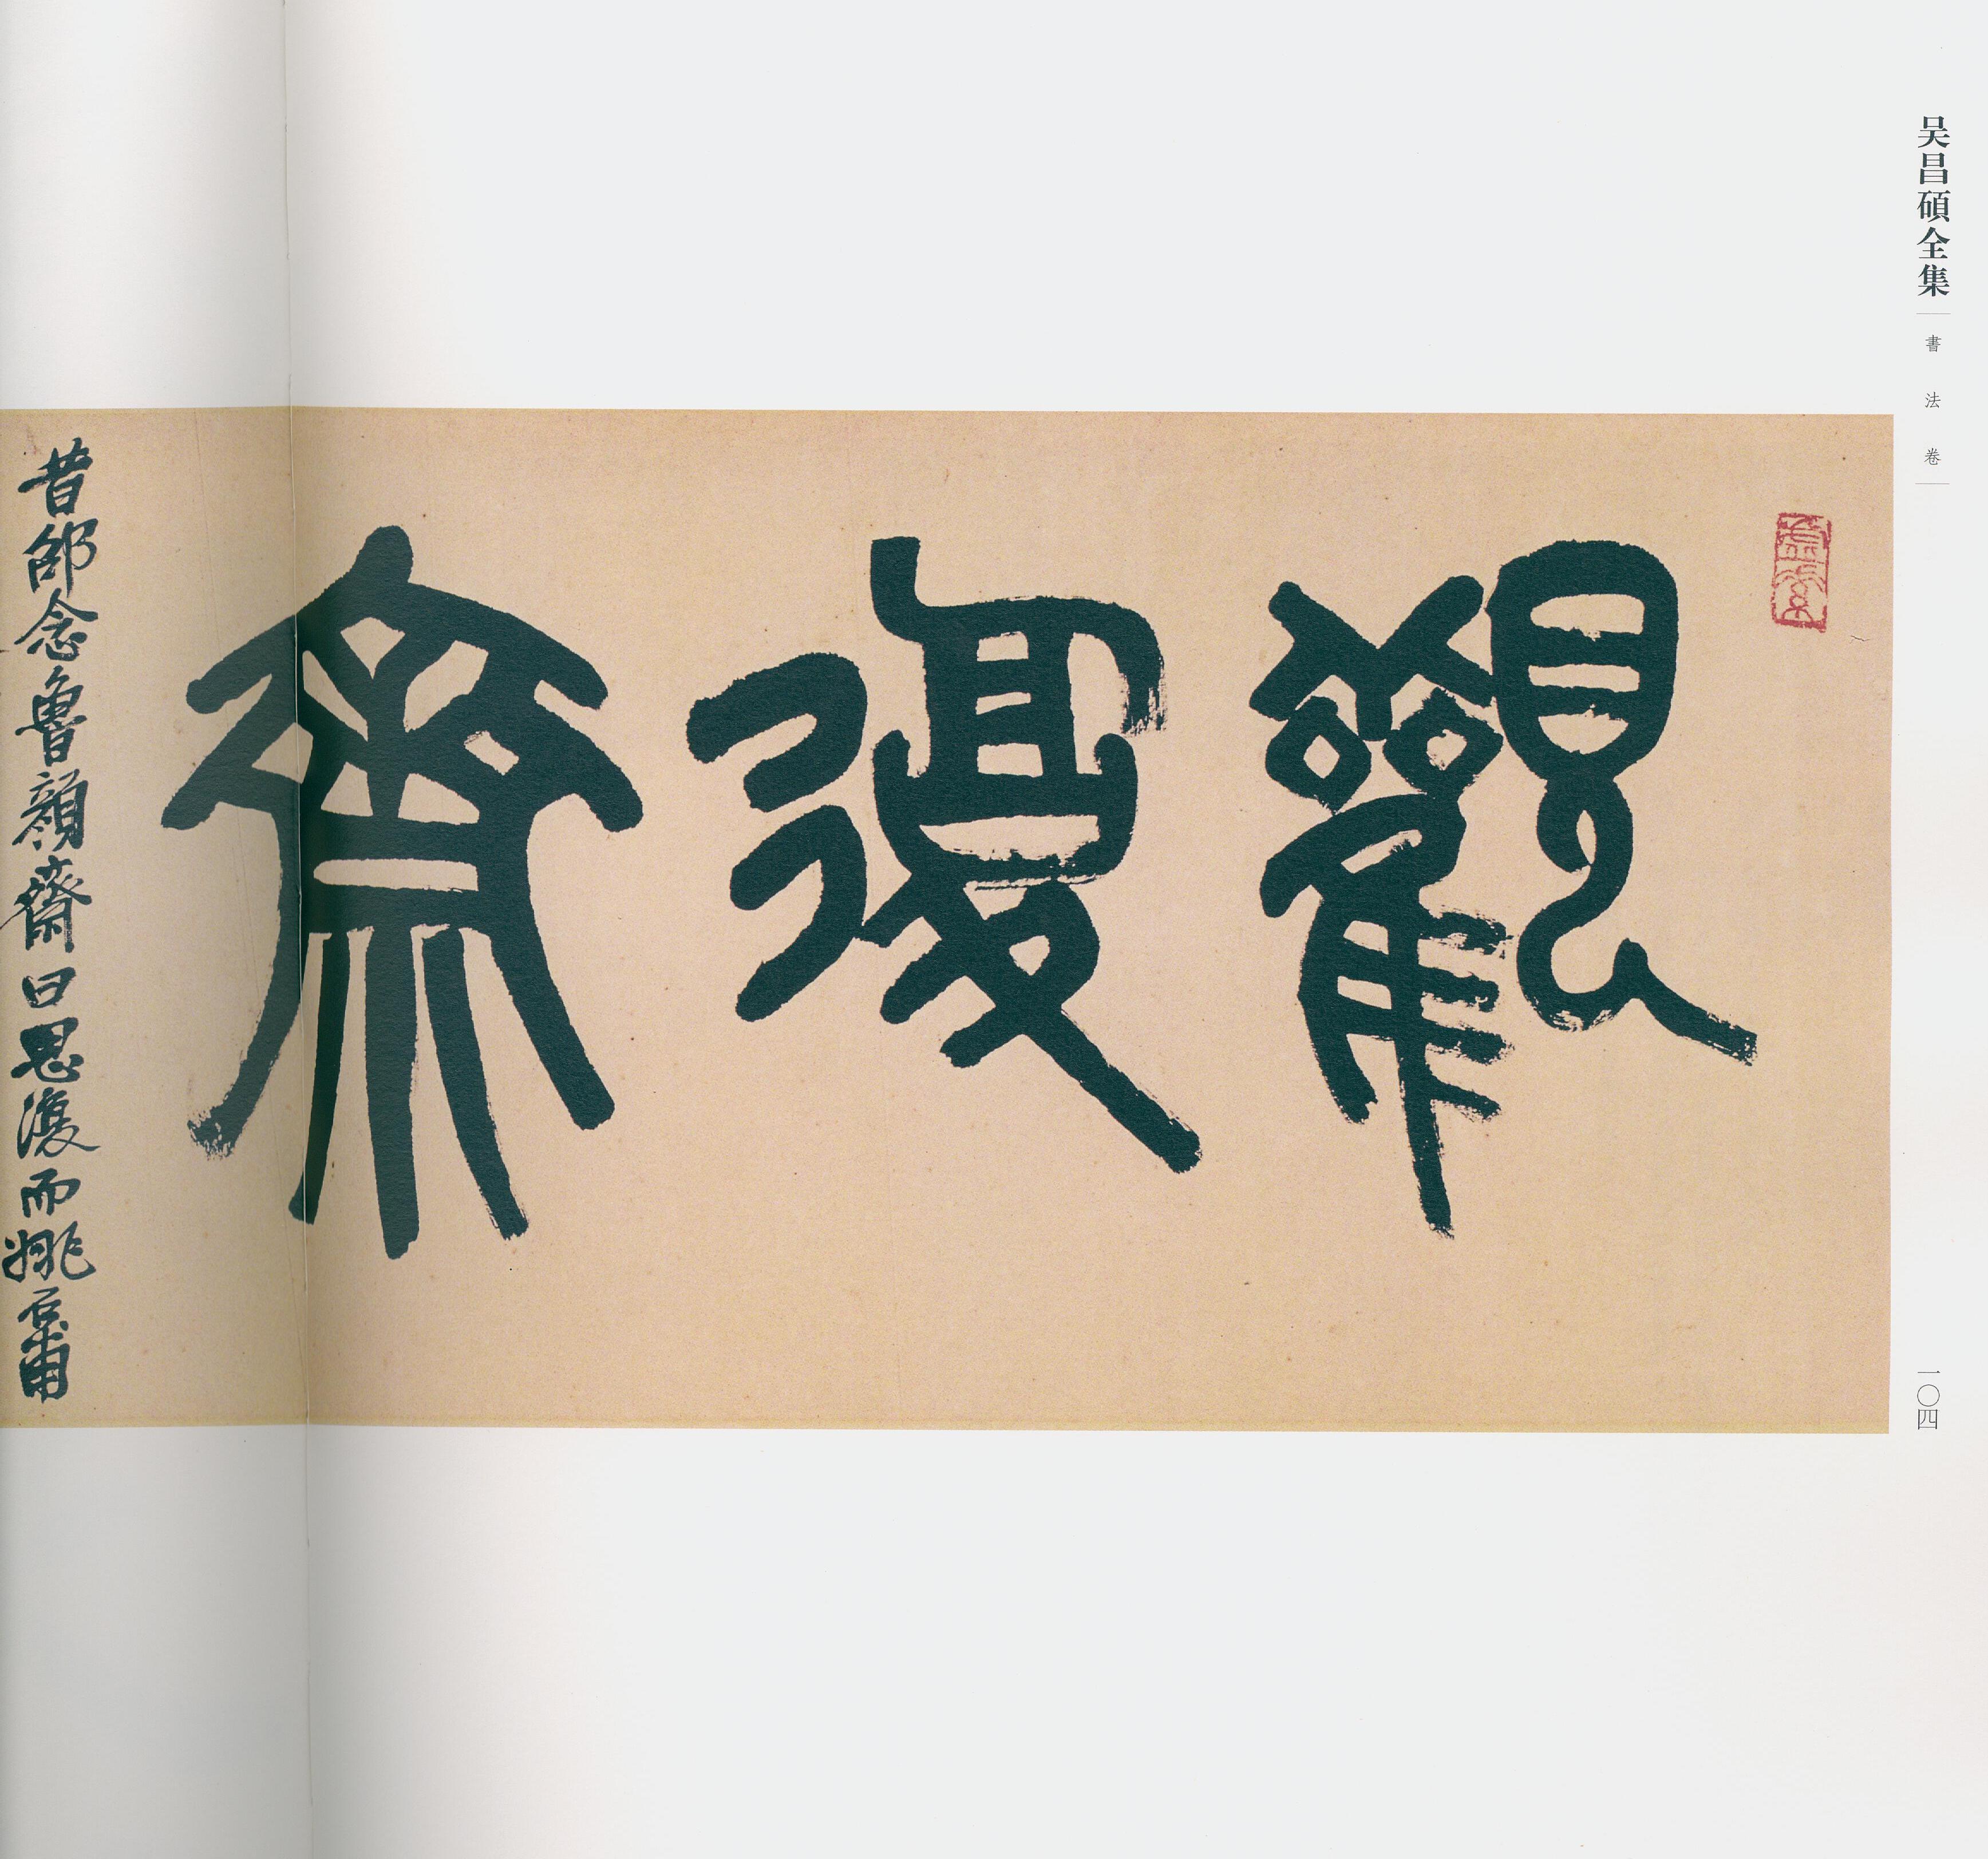 吴昌碩全集
書法卷
觀復齋
昔邵念魯顔齋曰思復而姚
一〇四